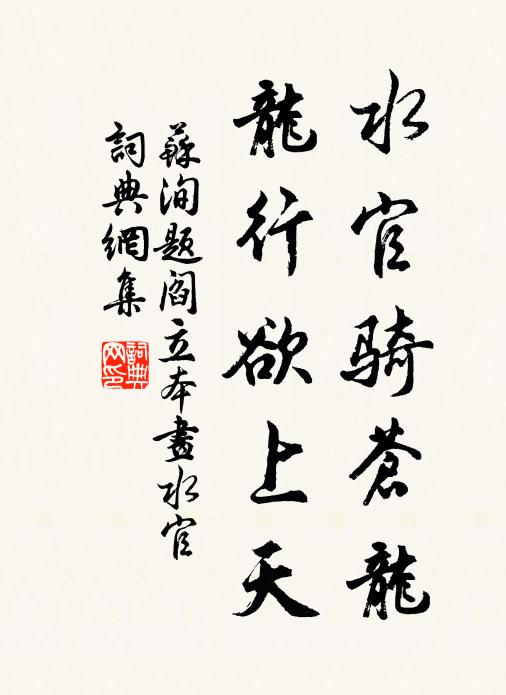 水官骑蒼龍
龍行欲上天
蘇洵题閻立本畫水官
詞典網集
詞典
网印